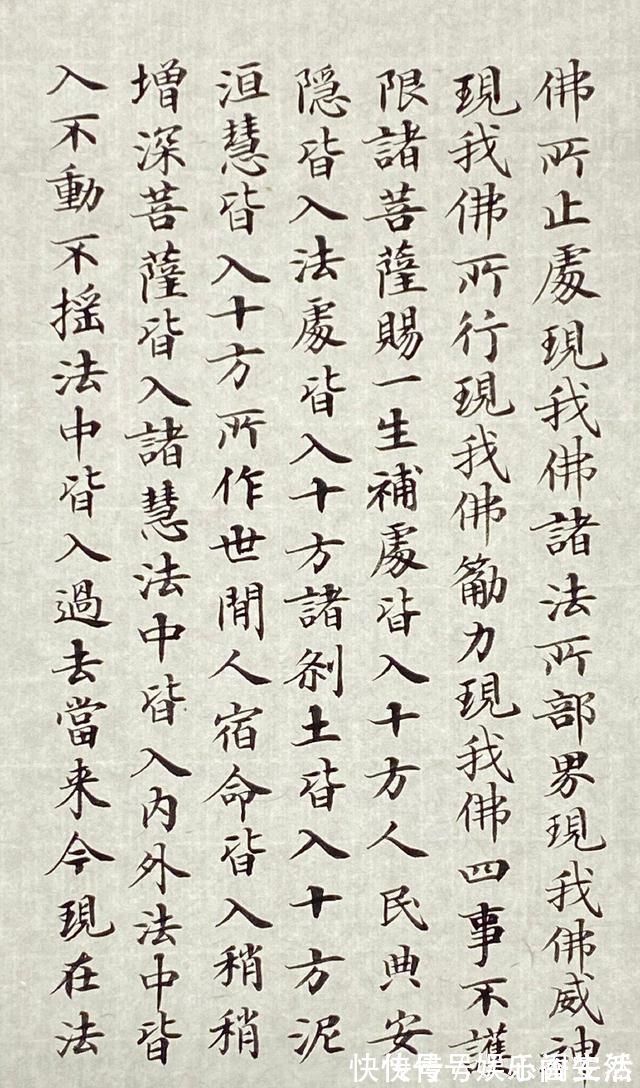 佛所止處現我佛諸法所部界現我佛威神
現我佛所行現我佛筋力現我佛四事不護
限諸菩薩賜一生補處皆入十方人民典安
隱皆入法處皆入十方諸剎土皆入十方泥
洹慧皆入十方所作世閒人宿命皆入稍稍
增深菩薩皆入諸慧法中皆入內外法中皆
入不動不揺法中皆入過去當来今現在法